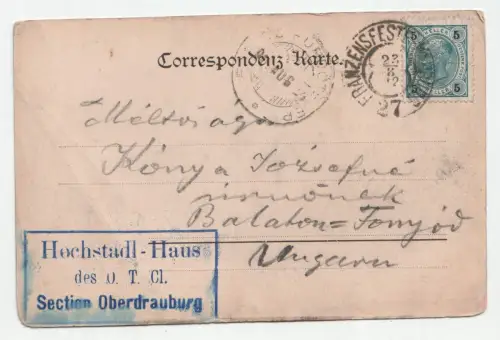 Correspondenz Karte.
5 5
FRANZENSFESTE
27
Méltóságos
Kónya Józsefné
úrnőnek
Balaton=Fonyód
Ungarn
Hochstadl-Haus
des O. T. Cl.
Section Oberdrauburg